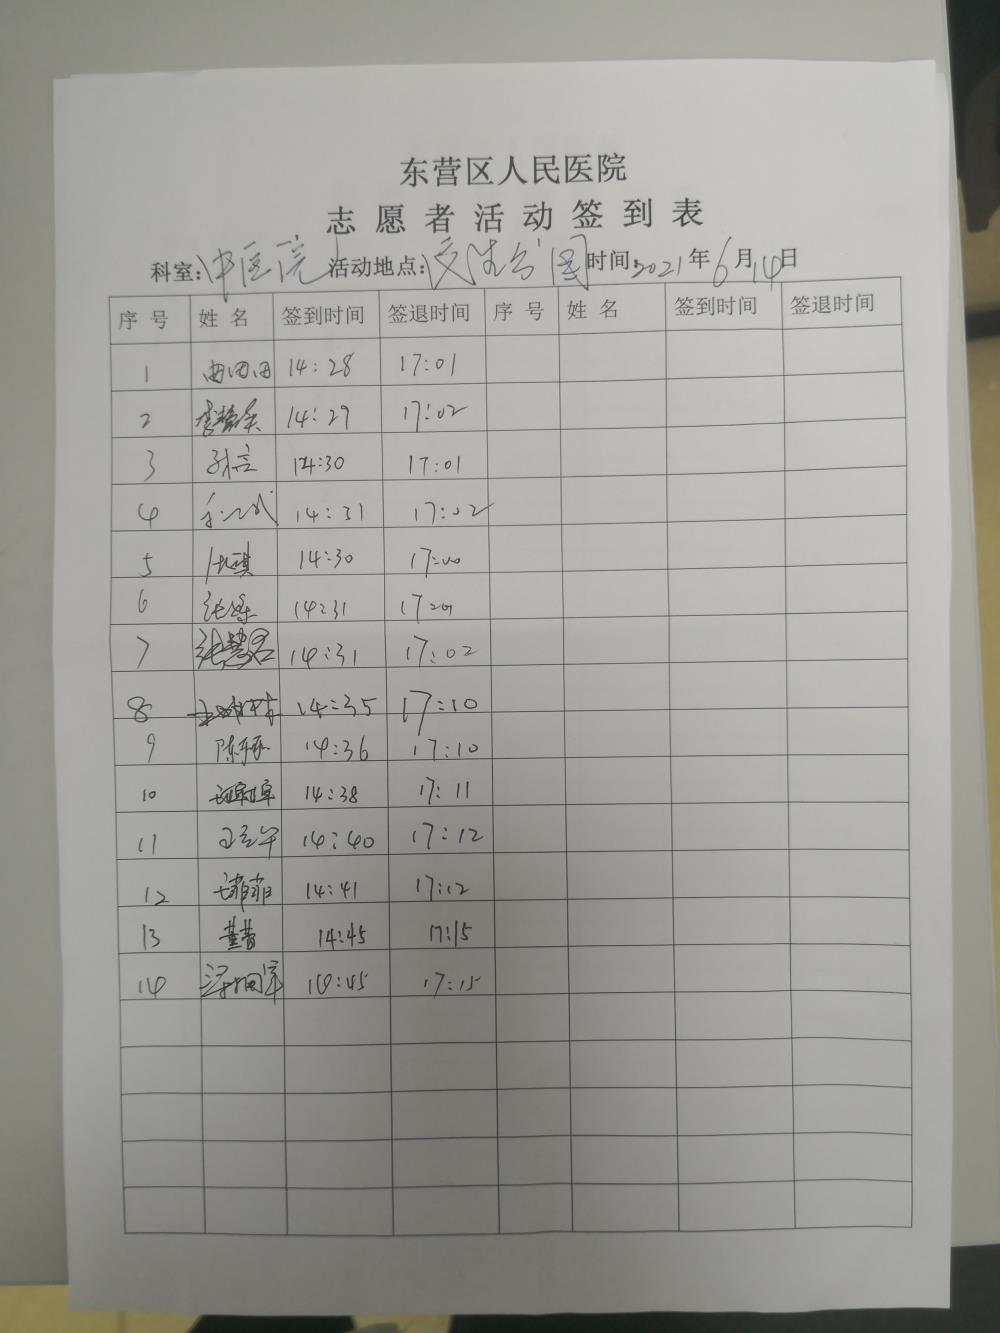 东营区人民医院
志愿者活动签到表
科室:中医院 活动地点: 时间:2021年6月14日
序号 姓名 签到时间 签退时间 序号 姓名 签到时间 签退时间
1 曲田田 14:28 17:01
2 14:29 17:02
3 14:30 17:01
4 14:31 17:02
5 14:30 17:00
6 14:31 17:01
7 张慧君 14:31 17:02
8 14:35 17:10
9 14:36 17:10
10 14:38 17:11
11 14:40 17:12
12 14:41 17:12
13 董蕾 14:45 17:15
14 14:45 17:15